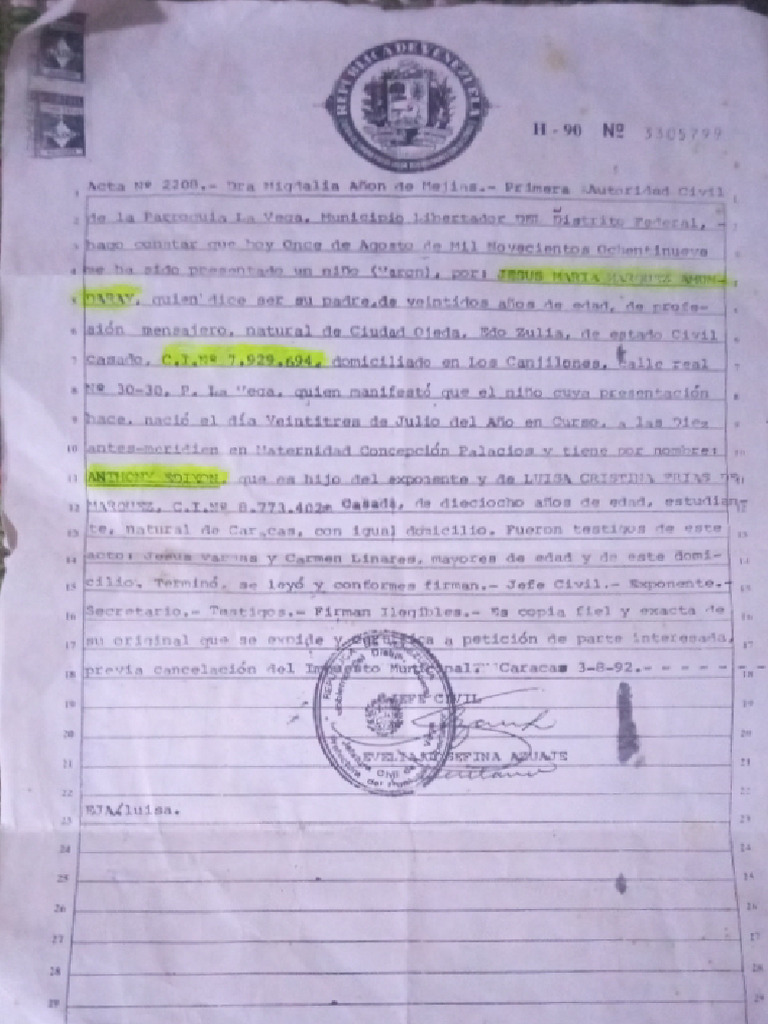 REPUBLICA DE VENEZUELA
H-90 Nº 3305799
1 Acta Nº 2208.- Dra Migdalia Añon de Mejias.- Primera Autoridad Civil 1
2 de la Parroquia La Vega, Municipio Libertador DEL Distrito Federal, - 2
3 hago constar que hoy Once de Agosto de Mil Novecientos Ochentinueve 3
4 me ha sido presentado un niño (Varon), por: JESUS MARIA MARQUEZ 4
5 quien dice ser su padre, de veintidos años de edad, de profe- 5
6 sión mensajero, natural de Ciudad Ojeda, Edo Zulia, de estado Civil 6
7 casado, C.I.Nº 7.929.694, domiciliado en Los Canjilones, calle real 7
8 Nº 30-30, P. La Vega, quien manifestó que el niño cuya presentación 8
9 hace, nació el día Veintitres de Julio del Año en Curso, a las Diez 9
10 antes-meridien en Maternidad Concepción Palacios y tiene por nombre: 10
11 ANTHONY que es hijo del exponente y de LUISA CRISTINA FRIAS DE
12 MARQUEZ, C.I.Nº 8.773.402 Casada, de dieciocho años de edad, estudian- 12
13 te, natural de Caracas, con igual domicilio. Fueron testigos de este 13
14 acto: Jesus Vargas y Carmen Linares, mayores de edad y de este domi- 14
15 cilio. Terminó, se leyó y conformes firman.- Jefe Civil.- Exponente.- 15
16 Secretario.- Testigos.- Firman Ilegibles.- Es copia fiel y exacta de 16
17 su original que se expide y certifica a petición de parte interesada, 17
18 previa cancelación del Impuesto Municipal. Caracas 3-8-92.- - - - - - - 18
19 JEFE CIVIL 19
20 20
21 EVELIA JOSEFINA AZUAJE 21
22 22
23 EJA/luisa. 23
24 24
25
26 26
27
28 28
29